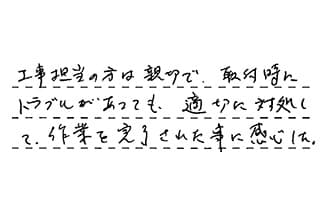 工事担当の方は親切で、取付時に
トラブルがあっても、適切に対処し
て、作業を完了された事に感心した。